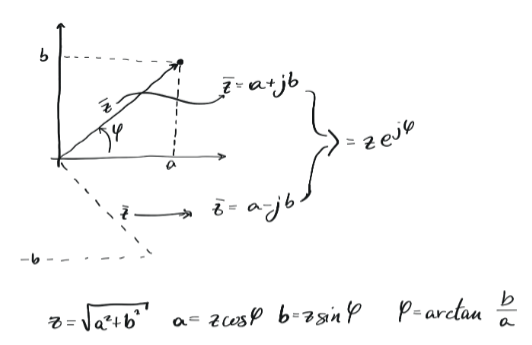 b
z̄ = a+jb
z̄
φ
= z e^{jφ}
a
z̄ → z̄ = a-jb
-b
z = √(a²+b²) a = z cos φ b = z sin φ φ = arctan b/a